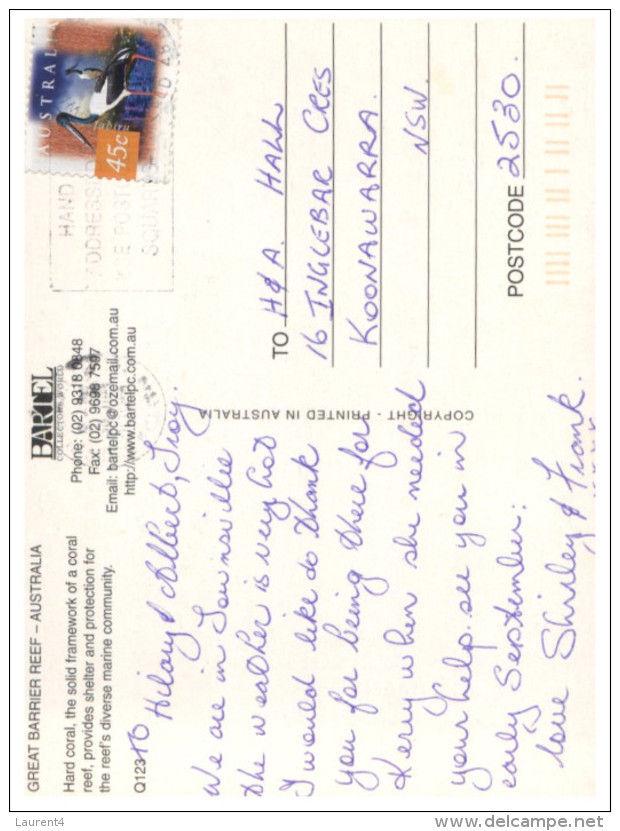 GREAT BARRIER REEF – AUSTRALIA
Hard coral, the solid framework of a coral
reef, provides shelter and protection for
the reef's diverse marine community.
Q123
BARTEL
COLLECTORS WORLD
Phone: (02) 9318 0848
Fax: (02) 9698 7597
Email: bartelpc@ozemail.com.au
http://www.bartelpc.com.au
To Hilary & Albert, Troy.
We are in Townsville
the weather is very hot
I would like to thank
you for being there for
Kerry when she needed
your help. see you in
early September:
love Shirley & Frank.
COPYRIGHT - PRINTED IN AUSTRALIA
AUSTRALIA
Jabiru
45c
HAND
ADDRESSED
USE POST
SQUARES
TO H & A. HALL
16 INGLEBAR CRES
KOONAWARRA.
NSW.
POSTCODE 2530.
Laurent4
www.delcampe.net